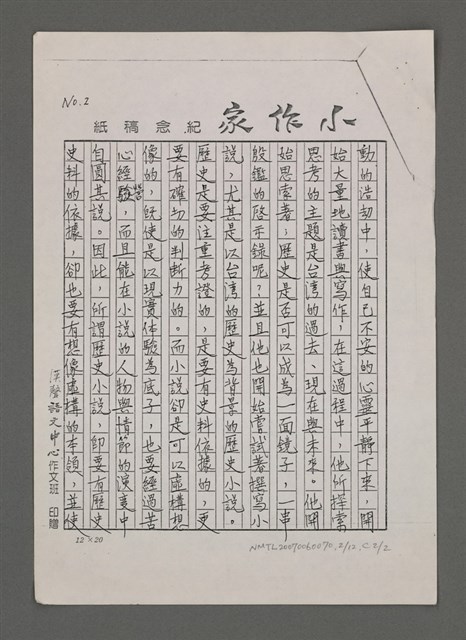 No.2
小作家 紀念稿紙
動的浩劫中，使自己不安的心靈平靜下來，開
始大量地讀書與寫作，在這過程中，他所探索
思考的主題是台灣的過去、現在與未來。他開
始思索著；歷史是否可以成為一面鏡子，一串
殷鑑的啟示錄呢？並且他也開始嘗試著撰寫小
說，尤其是以台灣的歷史為背景的歷史小說。
歷史是要注重考證的，是要有史料依據的，更
要有確切的判斷力的。而小說卻是可以虛構想
像的，既使是以現實体驗為底子，也要經過苦
心經營，而且能在小說的人物與情節的演變中
自圓其說。因此，所謂歷史小說，即要有歷史
史料的依據，卻也要有想像虛構的本領，並使
漢聲語文中心作文班 印贈
12×20
NMTL20070060070, 2/12, C.2/2